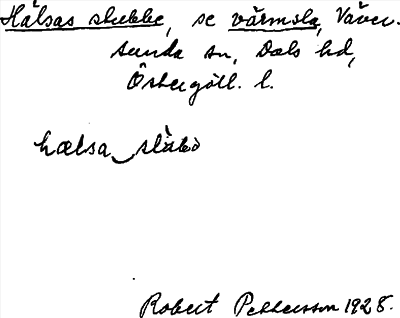 Hälsas stubbe, se värmsla, Väver-
sunda sn, Dals hd,
Östergötl. l.
hælsa
Robert Pettersson 1928.